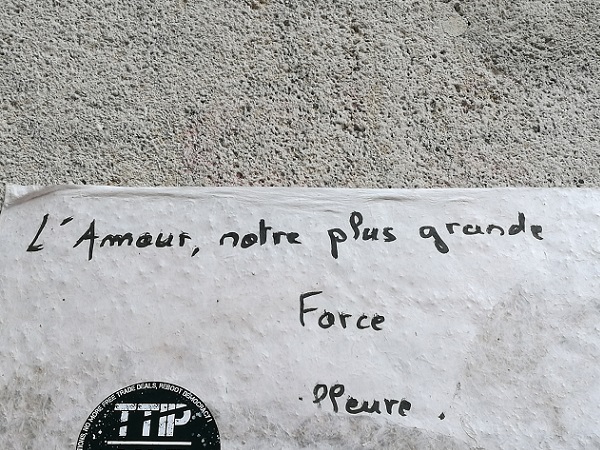 L'Amour, notre plus grande
Force
Pleure.
NO MORE FREE TRADE DEALS, REBOOT DEMOCRACY
TTIP